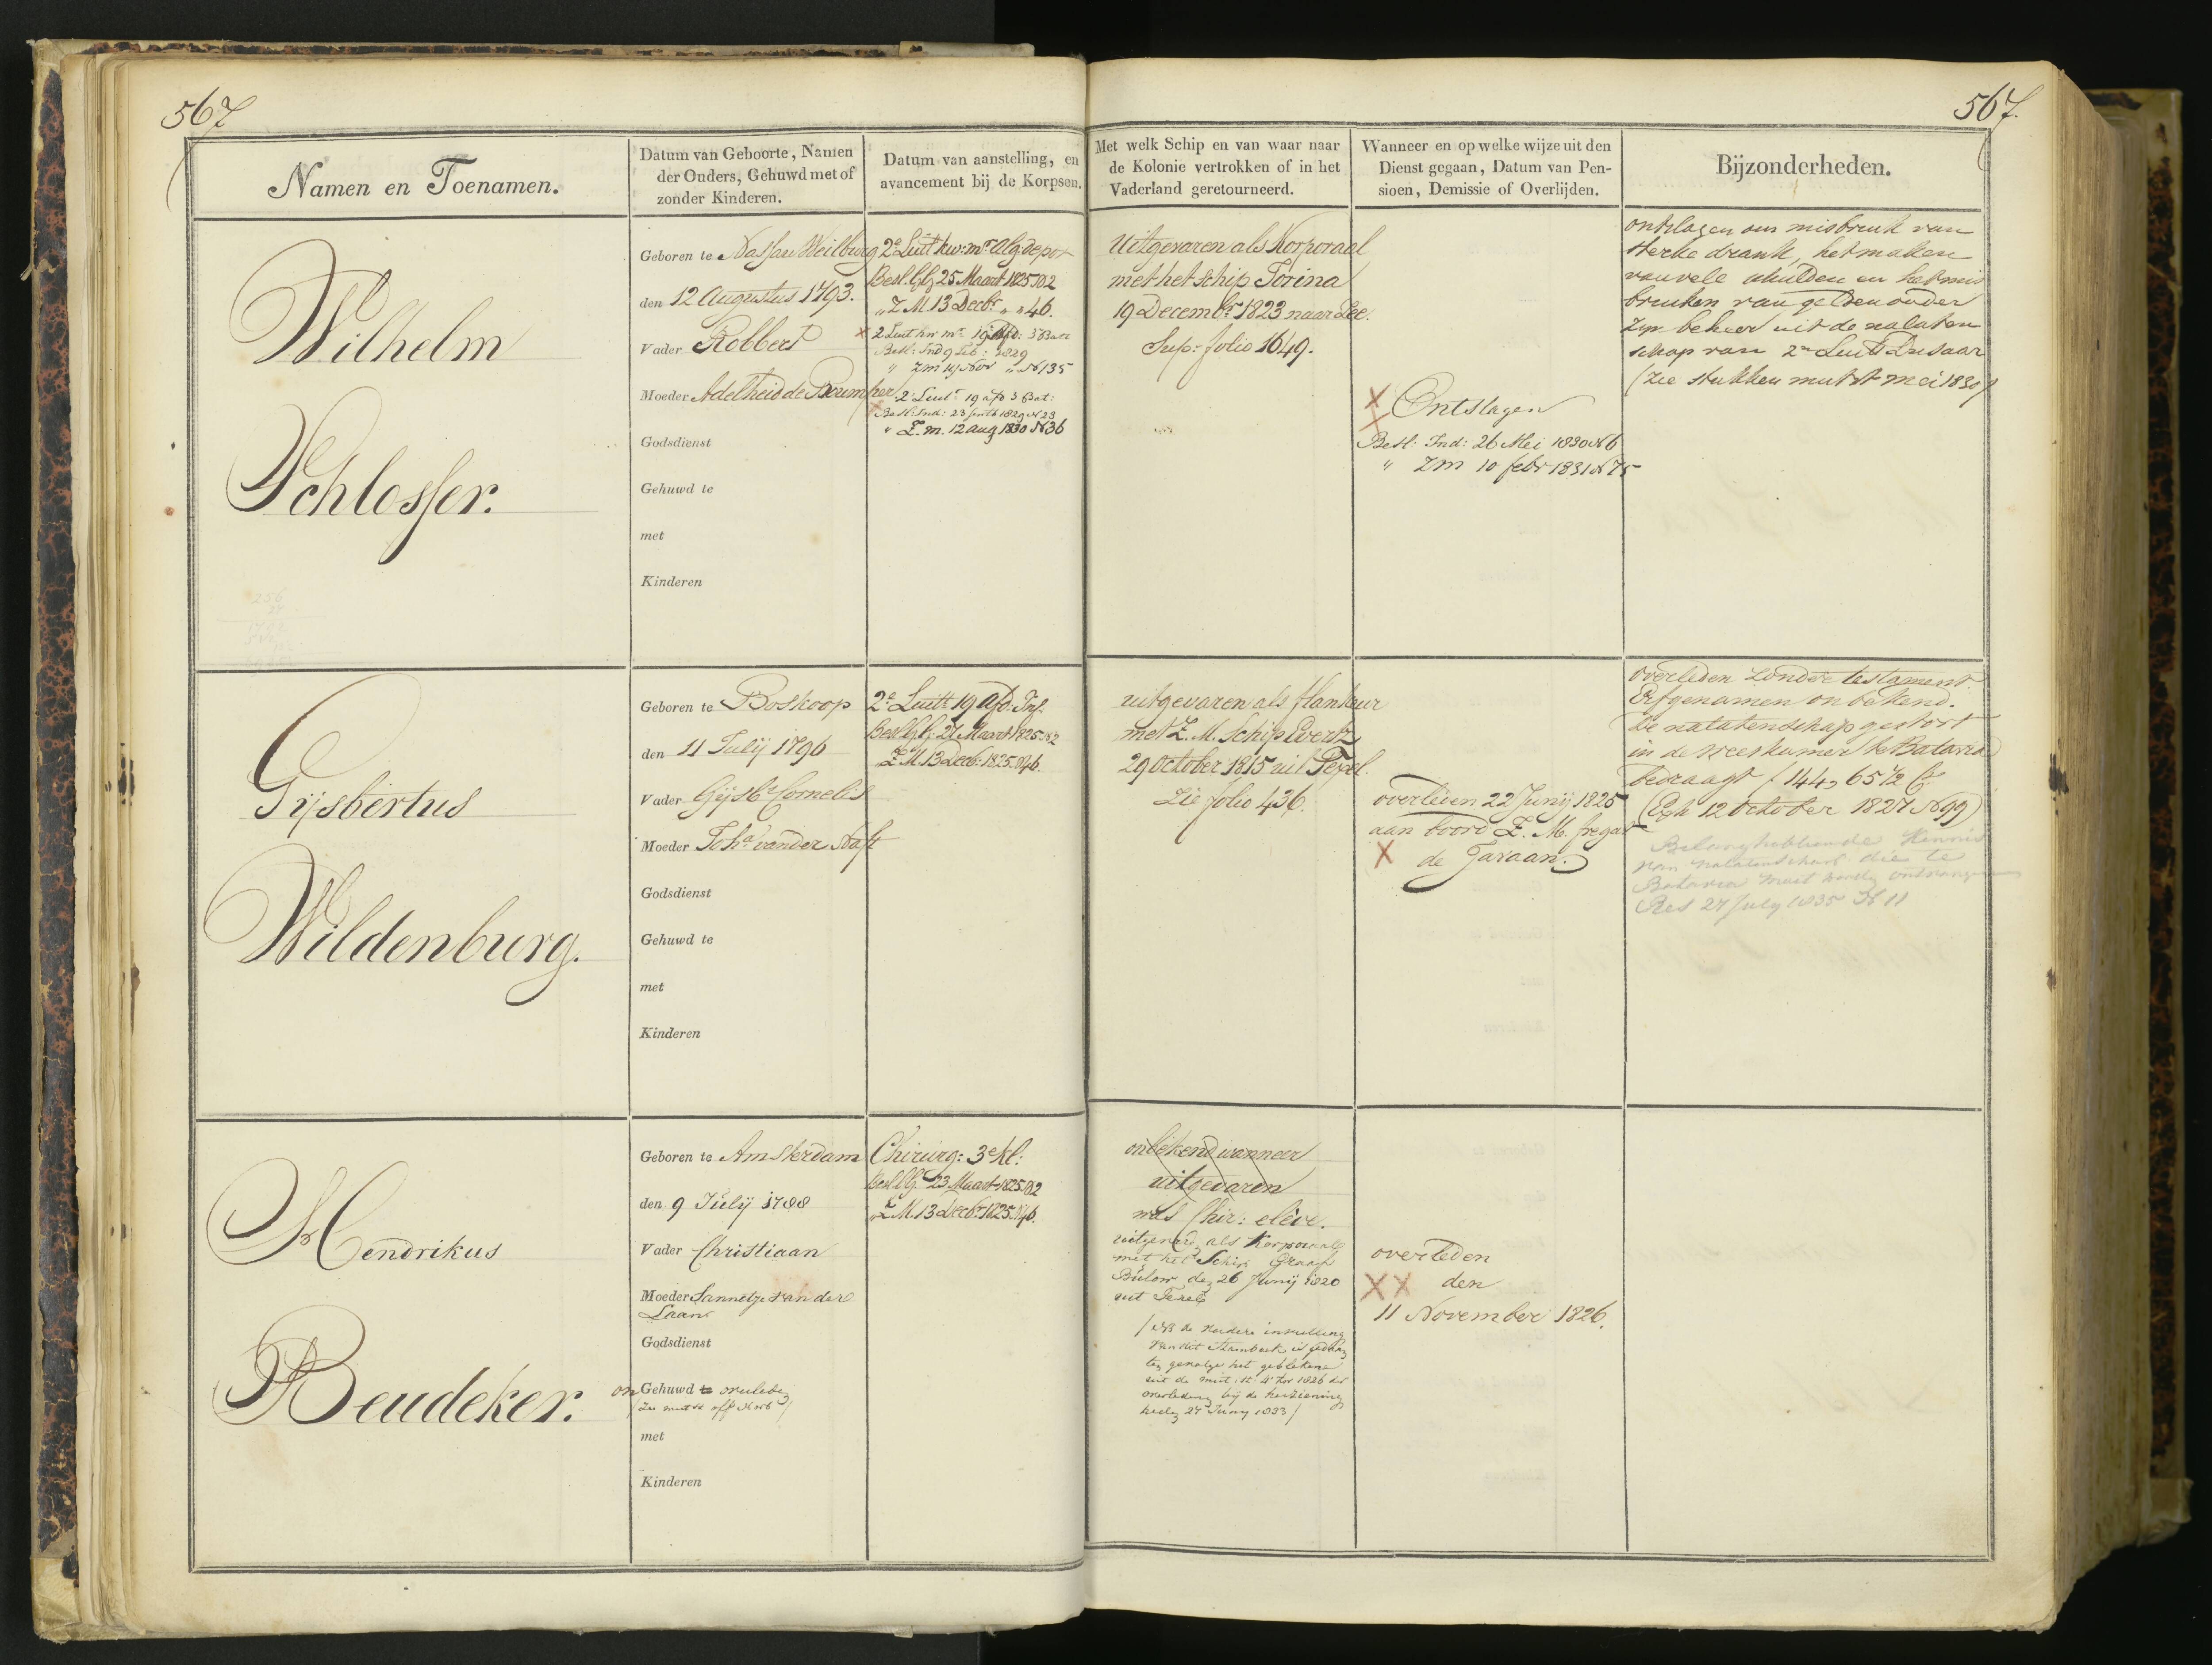 567
567.
Namen en Toenamen.
Datum van Geboorte, Namen
der Ouders, Gehuwd met of
zonder Kinderen.
Datum van aanstelling, en
avancement bij de Korpsen.
Met welk Schip en van waar naar
de Kolonie vertrokken of in het
Vaderland geretourneerd.
Wanneer en op welke wijze uit den
Dienst gegaan, Datum van Pen-
sioen, Demissie of Overlijden.
Bijzonderheden.
Wilhelm
Schlosser.
Geboren te Nassau Weilburg
den 12 Augustus 1793.
Vader Robbert
Moeder Adelheid de
Godsdienst
Gehuwd te
met
Kinderen
2e Luit kw: mr alg depot
Besl. G.G. 25 Maart 1825 No 2
" Z M 13 Decbr " " 46.
2 Luit kw mr 19 afd: 3 Bat
Besl: Ind 9 Feb: 1829
" Z M 19 Nov " No 135
2e Luit 19 afd 3 Bat:
Besl: Ind: 23 1829 N 23
" Z. M. 12 aug 1830 No 36
Uitgevaren als Korporaal
met het schip Corina
19 Decembr 1823 naar Zee.
Sup: folio 1649.
X Ontslagen
Besl: Ind: 26 Mei 1830 No 6
" Z M 10 febr 1831 No 75
ontslagen om misbruik van
sterke drank, het maken
van vele schulden en het mis
bruiken van gelden onder
zijn beheer uit de nalaten
schap van 2n Luit
(zie stukken mutst mei 1830)
Gijsbertus
Wildenburg.
Geboren te Boskoop
den 11 Julij 1796
Vader Gijsbt Cornelis
Moeder Joha van der
Godsdienst
Gehuwd te
met
Kinderen
2e Luitt 19 afd: Inf.
Besl. G.G. 27 Maart 1825 No 2
Z M 13 Decb: 1825 No 46.
uitgevaren als flankeur
met Z. M. Schip Evertz
29 October 1815 uit Texel.
Zie folio 436.
overleden 22 Junij 1825
aan boord Z. M. fregat
X de Javaan.
overleden zonder testament.
Erfgenamen onbekend.
De nalatenschap gestort
in de weeskamer te Batavia
bedraagt f 144, 65 1/2 C
(Exh 12 October 1827 No 99)
Belanghebbende kennis
van nalatenschap die te
Batavia moet worden ontvangen
Res 27 July 1835 No 11
Hendrikus
Beudeker.
Geboren te Amsterdam
den 9 Julij 1788
Vader Christiaan
Moeder Sannetje van der
Laan
Godsdienst
on Gehuwd te overleden
met
Kinderen
Chirurg: 3e kl:
Besl G.G. 23 Maart 1825 No 2
" Z M. 13 Decbr 1825 No 46.
onbekend wanneer
uitgevaren
was Chir: eleve.
uitgevaren als Korporaal
met het Schip Graaf
Bülow den 26 Junij 1820
uit Texel
/ NB de verdere invulling
van dit Stamboek is
gevolge het gebleken
uit de 1826
overleden bij de herziening
heden 27 Juny 1833 /
overleden
XX den
11 November 1826.